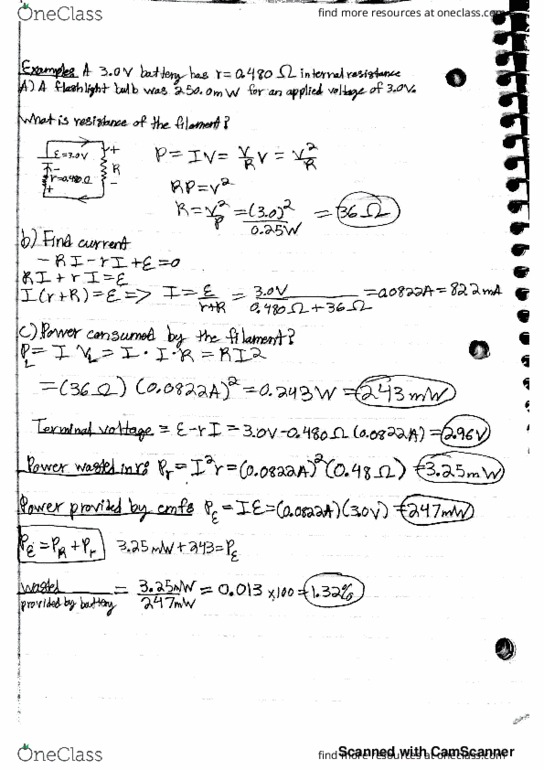 OneClass
find more resources at oneclass.com
Examples A 3.0V battery has r=0.480 Ω internal resistance
A) A flashlight bulb was 250.0mW for an applied voltage of 3.0V.
What is resistance of the filament?
ε=3.0V
r=0.480Ω
+
R
-
P = IV = V/R V = V²/R
RP=V²
R = V²/P = (3.0)²/0.25W = 36Ω
b) Find current
-RI-rI+ε=0
RI+rI=ε
I(r+R)=ε => I = ε/r+R = 3.0V/0.480Ω+36Ω = 0.0822A = 82.2mA
c) Power consumed by the filament?
P_L = I V_L = I · I · R = RI2
=(36Ω) (0.0822A)² = 0.243W = 243mW
Terminal voltage = ε-rI = 3.0V-0.480Ω(0.0822A) = 2.96V
Power wasted in r: Pr = I²r = (0.0822A)²(0.48Ω) = 3.25mW
Power provided by emfs P_ε = Iε = (0.0822A)(3.0V) = 247mW
P_ε = P_R + P_r 3.25mW+243=P_ε
wasted/provided by battery = 3.25mW/247mW = 0.013 x100 = 1.32%
OneClass
find more resources at oneclass.com
Scanned with CamScanner